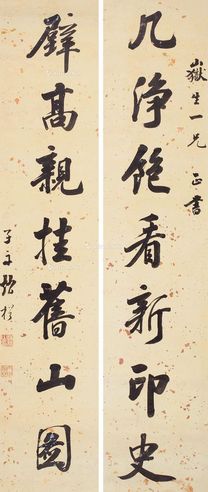 嶽生一兄正書
几淨飽看新印史
壁高親挂舊山圖
子